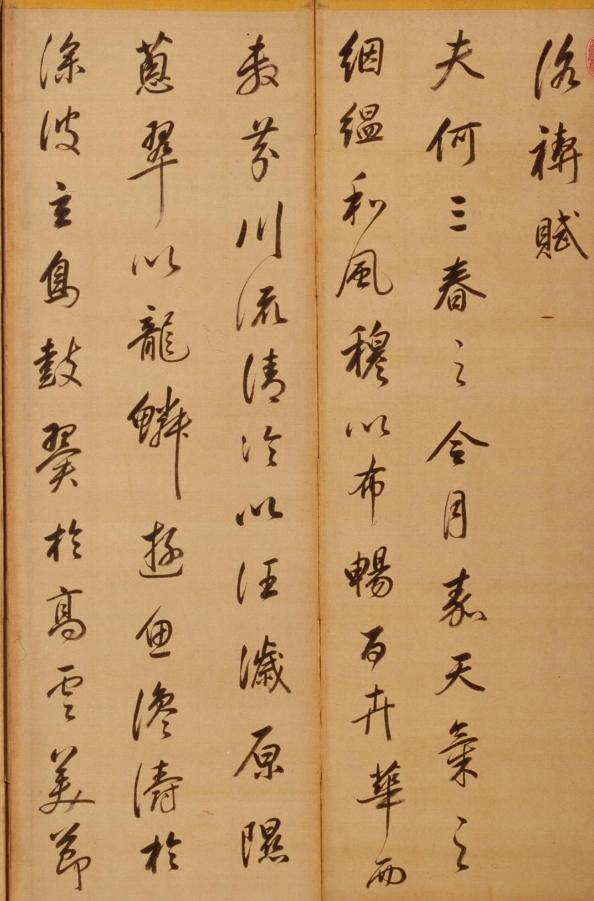 洛禊賦
夫何三春之令月嘉天氣之
絪縕和風穆以布暢百卉華而
敷芬川流清泠以汪濊原隰
蔥翠以龍鱗遊魚瀺濤於
淥波玄鳥鼓翼於高雲美節